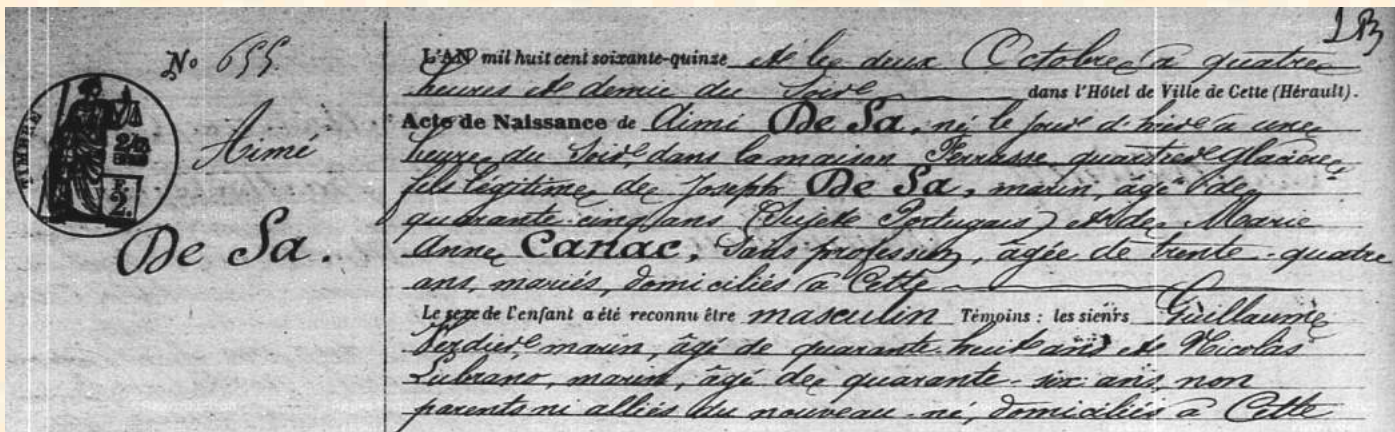 LB
N° 655
Aimé
De Sa.
TIMBRE
2/10
2.
L'AN mil huit cent soixante-quinze et le deux Octobre à quatre
heures et demie du Soir dans l'Hôtel de Ville de Cette (Hérault).
Acte de Naissance de Aimé De Sa, né le jour d'hier à une
heure du Soir, dans la maison Ferrasse, quartier
fils légitime de Joseph De Sa, marin, âgé de
quarante-cinq ans (Sujet Portugais) et de Marie
Anne Canac, Sans profession, âgée de trente-quatre
ans, mariés, domiciliés à Cette
Le sexe de l'enfant a été reconnu être masculin Témoins : les sieurs Guillaume
Verdier, marin, âgé de quarante-huit ans et Nicolas
Lubrano, marin, âgé de quarante-six ans, non
parents ni alliés du nouveau-né, domiciliés à Cette